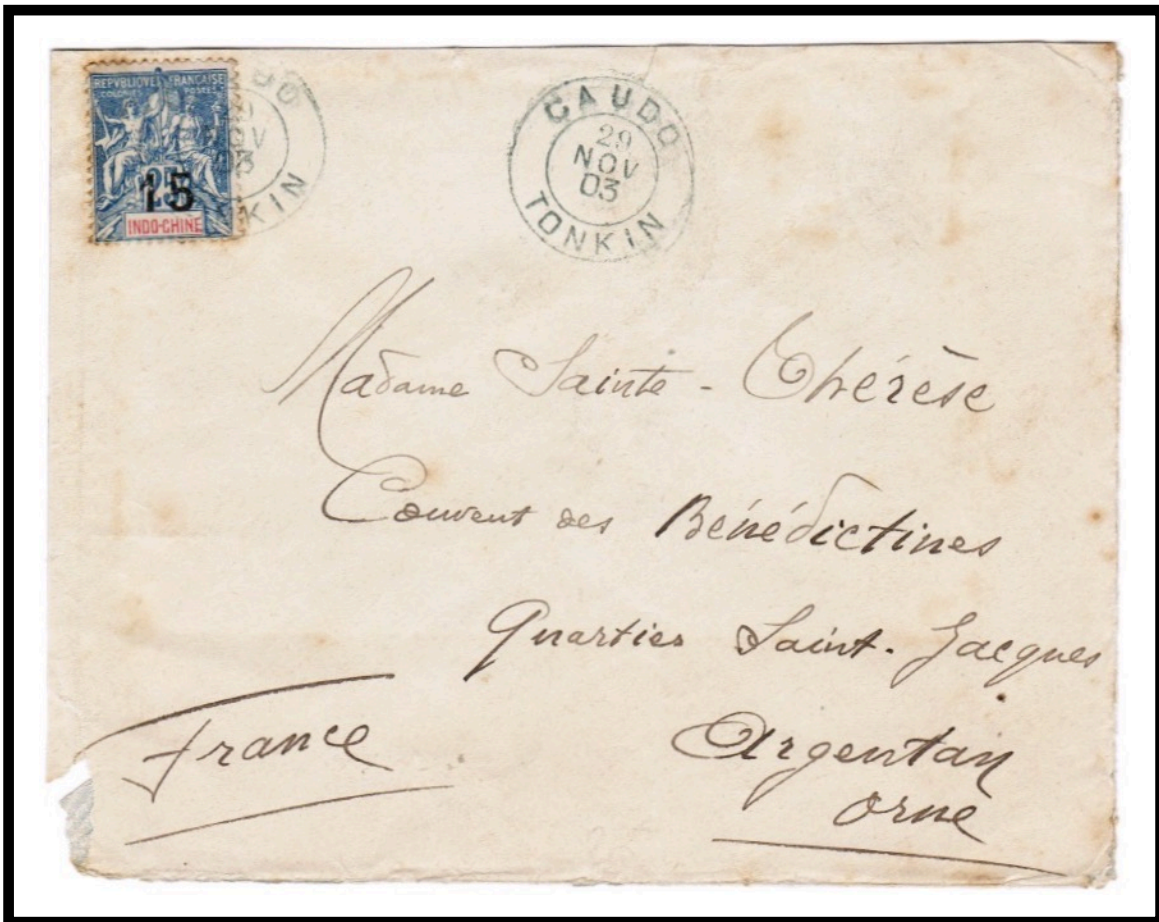 REPVBLIQVE FRANÇAISE
COLONIES POSTES
25
15
INDO-CHINE
DO
NOV
03
KIN
CAUDO
29
NOV
03
TONKIN
Madame Sainte-Thérèse
Couvent des Bénédictines
Quartier Saint-Jacques
Argentan
Orne
France